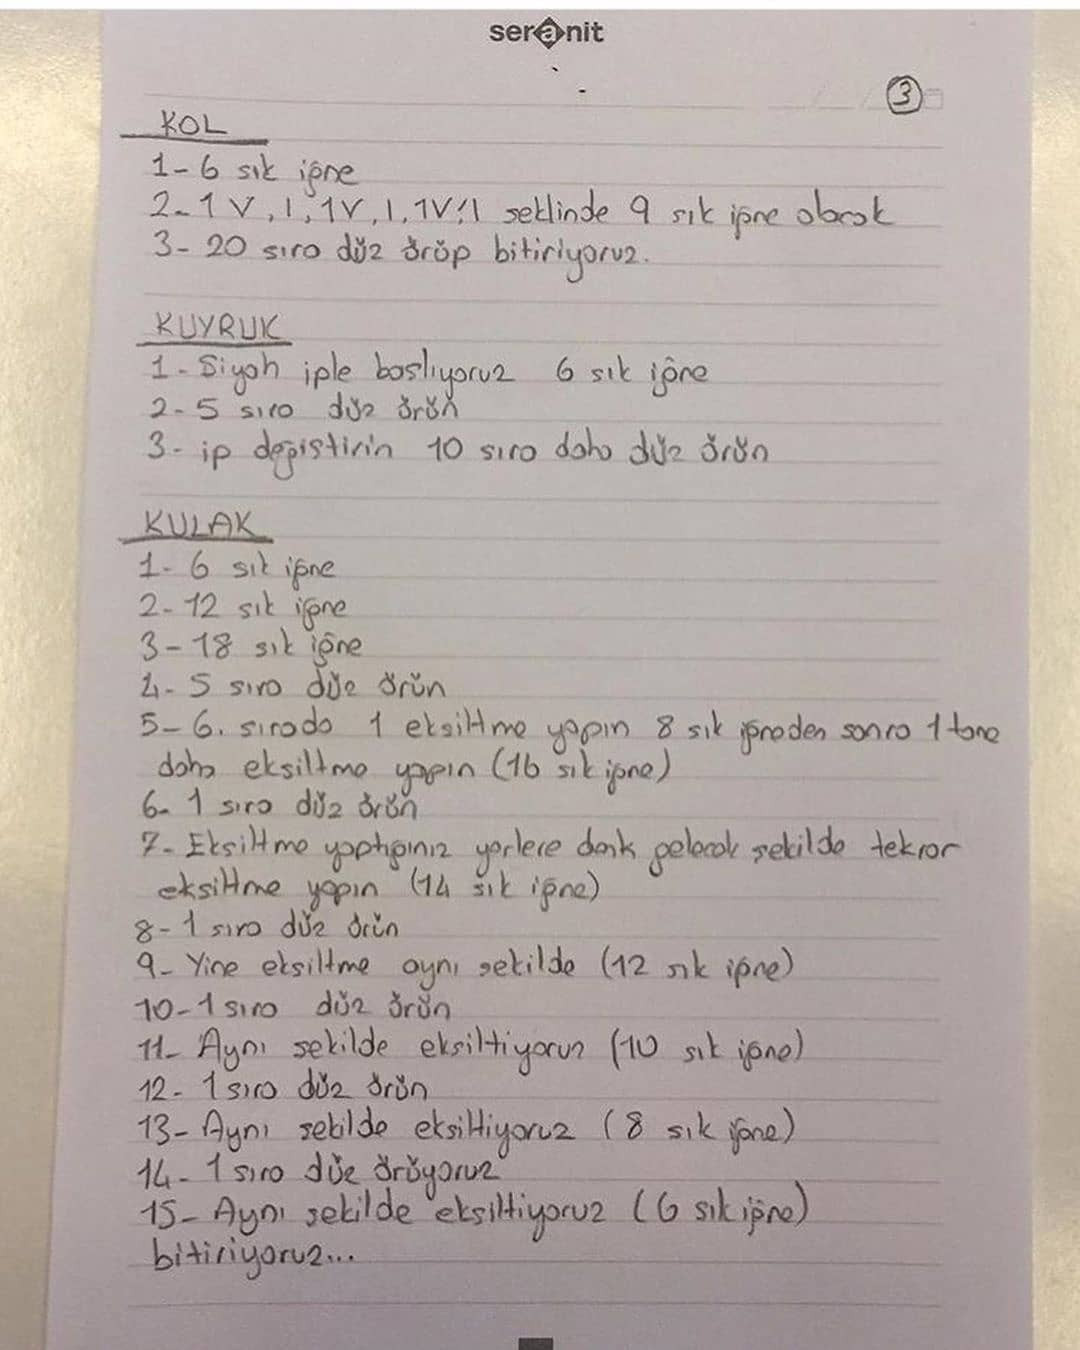 seranit
3
KOL
1- 6 sık iğne
2- 1V, I, 1V, I, 1V, 1 şeklinde 9 sık iğne olarak
3- 20 sıra düz örüp bitiriyoruz.
KUYRUK
1- Siyah iple başlıyoruz 6 sık iğne
2- 5 sıra düz örün
3- ip değiştirin 10 sıra daha düz örün
KULAK
1- 6 sık iğne
2- 12 sık iğne
3- 18 sık iğne
4- 5 sıra düz örün
5- 6. sırada 1 eksiltme yapın 8 sık iğneden sonra 1 tane
daha eksiltme yapın (16 sık iğne)
6- 1 sıra düz örün
7- Eksiltme yaptığınız yerlere denk gelecek şekilde tekrar
eksiltme yapın (14 sık iğne)
8- 1 sıra düz örün
9- Yine eksiltme aynı şekilde (12 sık iğne)
10- 1 sıra düz örün
11- Aynı şekilde eksiltiyoruz (10 sık iğne)
12- 1 sıra düz örün
13- Aynı şekilde eksiltiyoruz (8 sık iğne)
14- 1 sıra düz örüyoruz
15- Aynı şekilde eksiltiyoruz (6 sık iğne)
bitiriyoruz...